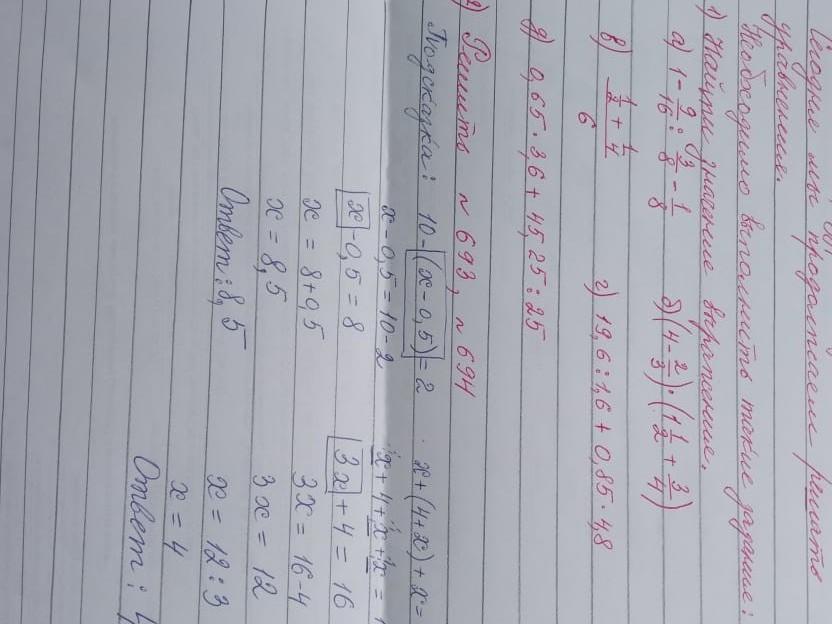 Сегодня мы продолжаем решать
уравнения.
Необходимо выполнить такие задание:
1) Найти значение выражение.
а) 1 - 9/16 : 3/8 - 1/8 б) (4 - 2/3) · (1 1/2 + 3/4)
в) (1/2 + 1/4)/6 г) 19,6 : 1,6 + 0,85 · 4,8
д) 0,65 · 3,6 + 45,25 : 25
2) Решить № 693, № 694
Подсказка: 10 - (x - 0,5) = 2 x + (4 + x) + x =
x - 0,5 = 10 - 2 x + 4 + x + x = 1
x - 0,5 = 8 3x + 4 = 16
x = 8 + 0,5 3x = 16 - 4
x = 8,5 3x = 12
Ответ: 8,5 x = 12 : 3
x = 4
Ответ: 4